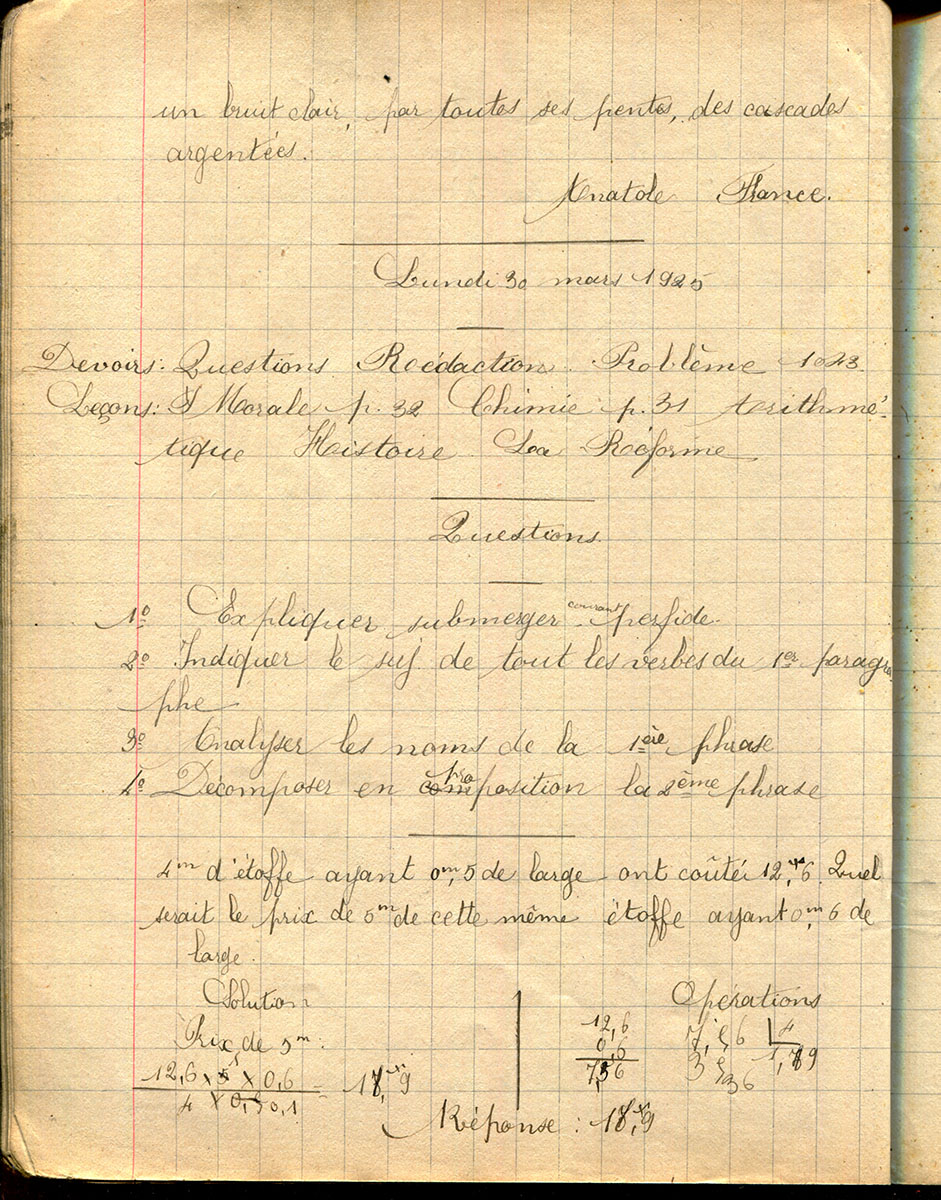 un bruit clair, par toutes ses pentes, des cascades
argentées.
Anatole France.
Lundi 30 mars 1925
Devoirs: Questions Rédaction. Problème 1023.
Leçons: Morale p. 32 Chimie p. 31 Arithmé-
tique Histoire La Réforme
Questions.
1º Expliquer submerger - courant perfide.
2º Indiquer le suj de tout les verbes du 1er paragra
phe
3º Analyser les noms de la 1ère phrase
4º Décomposer en proposition la 2ème phrase
4m d'étoffe ayant 0m,5 de large ont coûté 12,6. Quel
serait le prix de 5m de cette même étoffe ayant 0m,6 de
large.
Solution
Opérations
Prix de 5m:
12,6 x 5 x 0,6
4 x 0,5 0,1
= 18,9
12,6
0,6
7,56
7,56 4
3 5
36
1,89
Réponse: 18,9